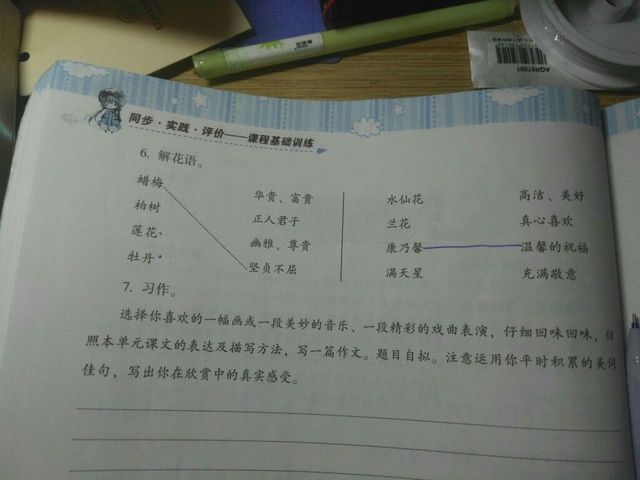 AGR67001
同步·实践·评价——课程基础训练
6. 解花语。
蜡梅 华贵、富贵 水仙花 高洁、美好
柏树 正人君子 兰花 真心喜欢
莲花 幽雅、尊贵 康乃馨 温馨的祝福
牡丹 坚贞不屈 满天星 充满敬意
7. 习作。
选择你喜欢的一幅画或一段美妙的音乐、一段精彩的戏曲表演，仔细回味回味，仿
照本单元课文的表达及描写方法，写一篇作文。题目自拟。注意运用你平时积累的美词
佳句，写出你在欣赏中的真实感受。